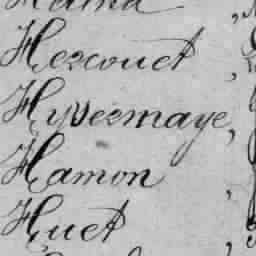 Hercouet,
Hyvermaye,
Hamon,
Huet,